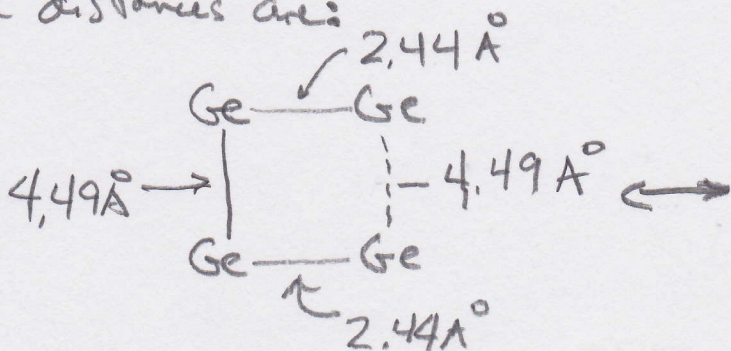 distances are:
2.44 A°
Ge Ge
4.49A° 4.49 A°
Ge Ge
2.44A°